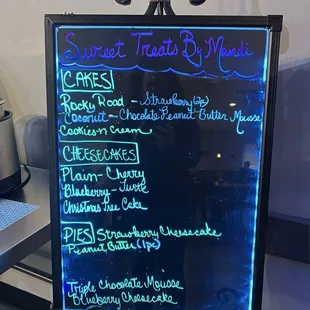 Sweet Treats By Mandi
CAKES
Rocky Road - Strawberry (2pc)
Coconut - Chocolate Peanut Butter Mousse
Cookies n Cream
CHEESECAKES
Plain - Cherry
Blueberry - Turtle
Christmas Tree Cake
PIES Strawberry Cheesecake
Peanut Butter (1pc)
Triple Chocolate Mousse
Blueberry Cheesecake